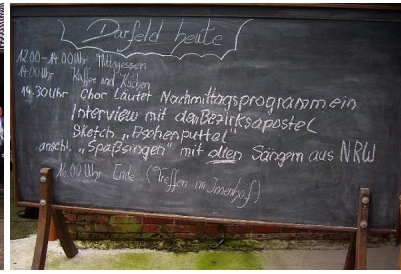 Darfeld heute
12.00-14.00 Uhr Mittagessen
14.00 Uhr Kaffee und Kuchen
14.30 Uhr Chor Läutet Nachmittagsprogramm ein
Interview mit den Bezirksapostel
Sketch „Eschenputtal"
anschl. „Spaßsingen" mit allen Sängern aus NRW
16.00 Uhr Ende (Treffen im Innenhof)